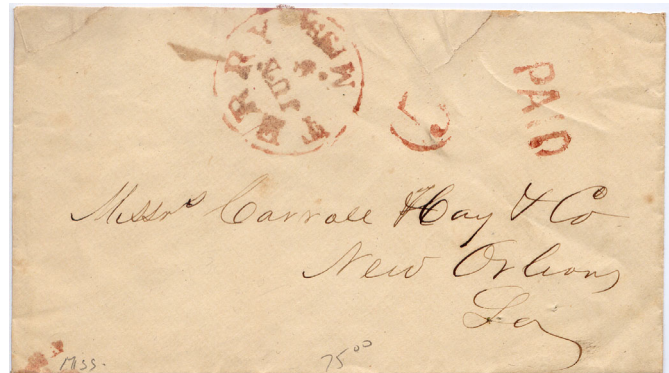 TERRY MISS.
JUN
5
PAID
Messrs Carroll Hoy & Co
New Orleans
La
Miss.
75 00